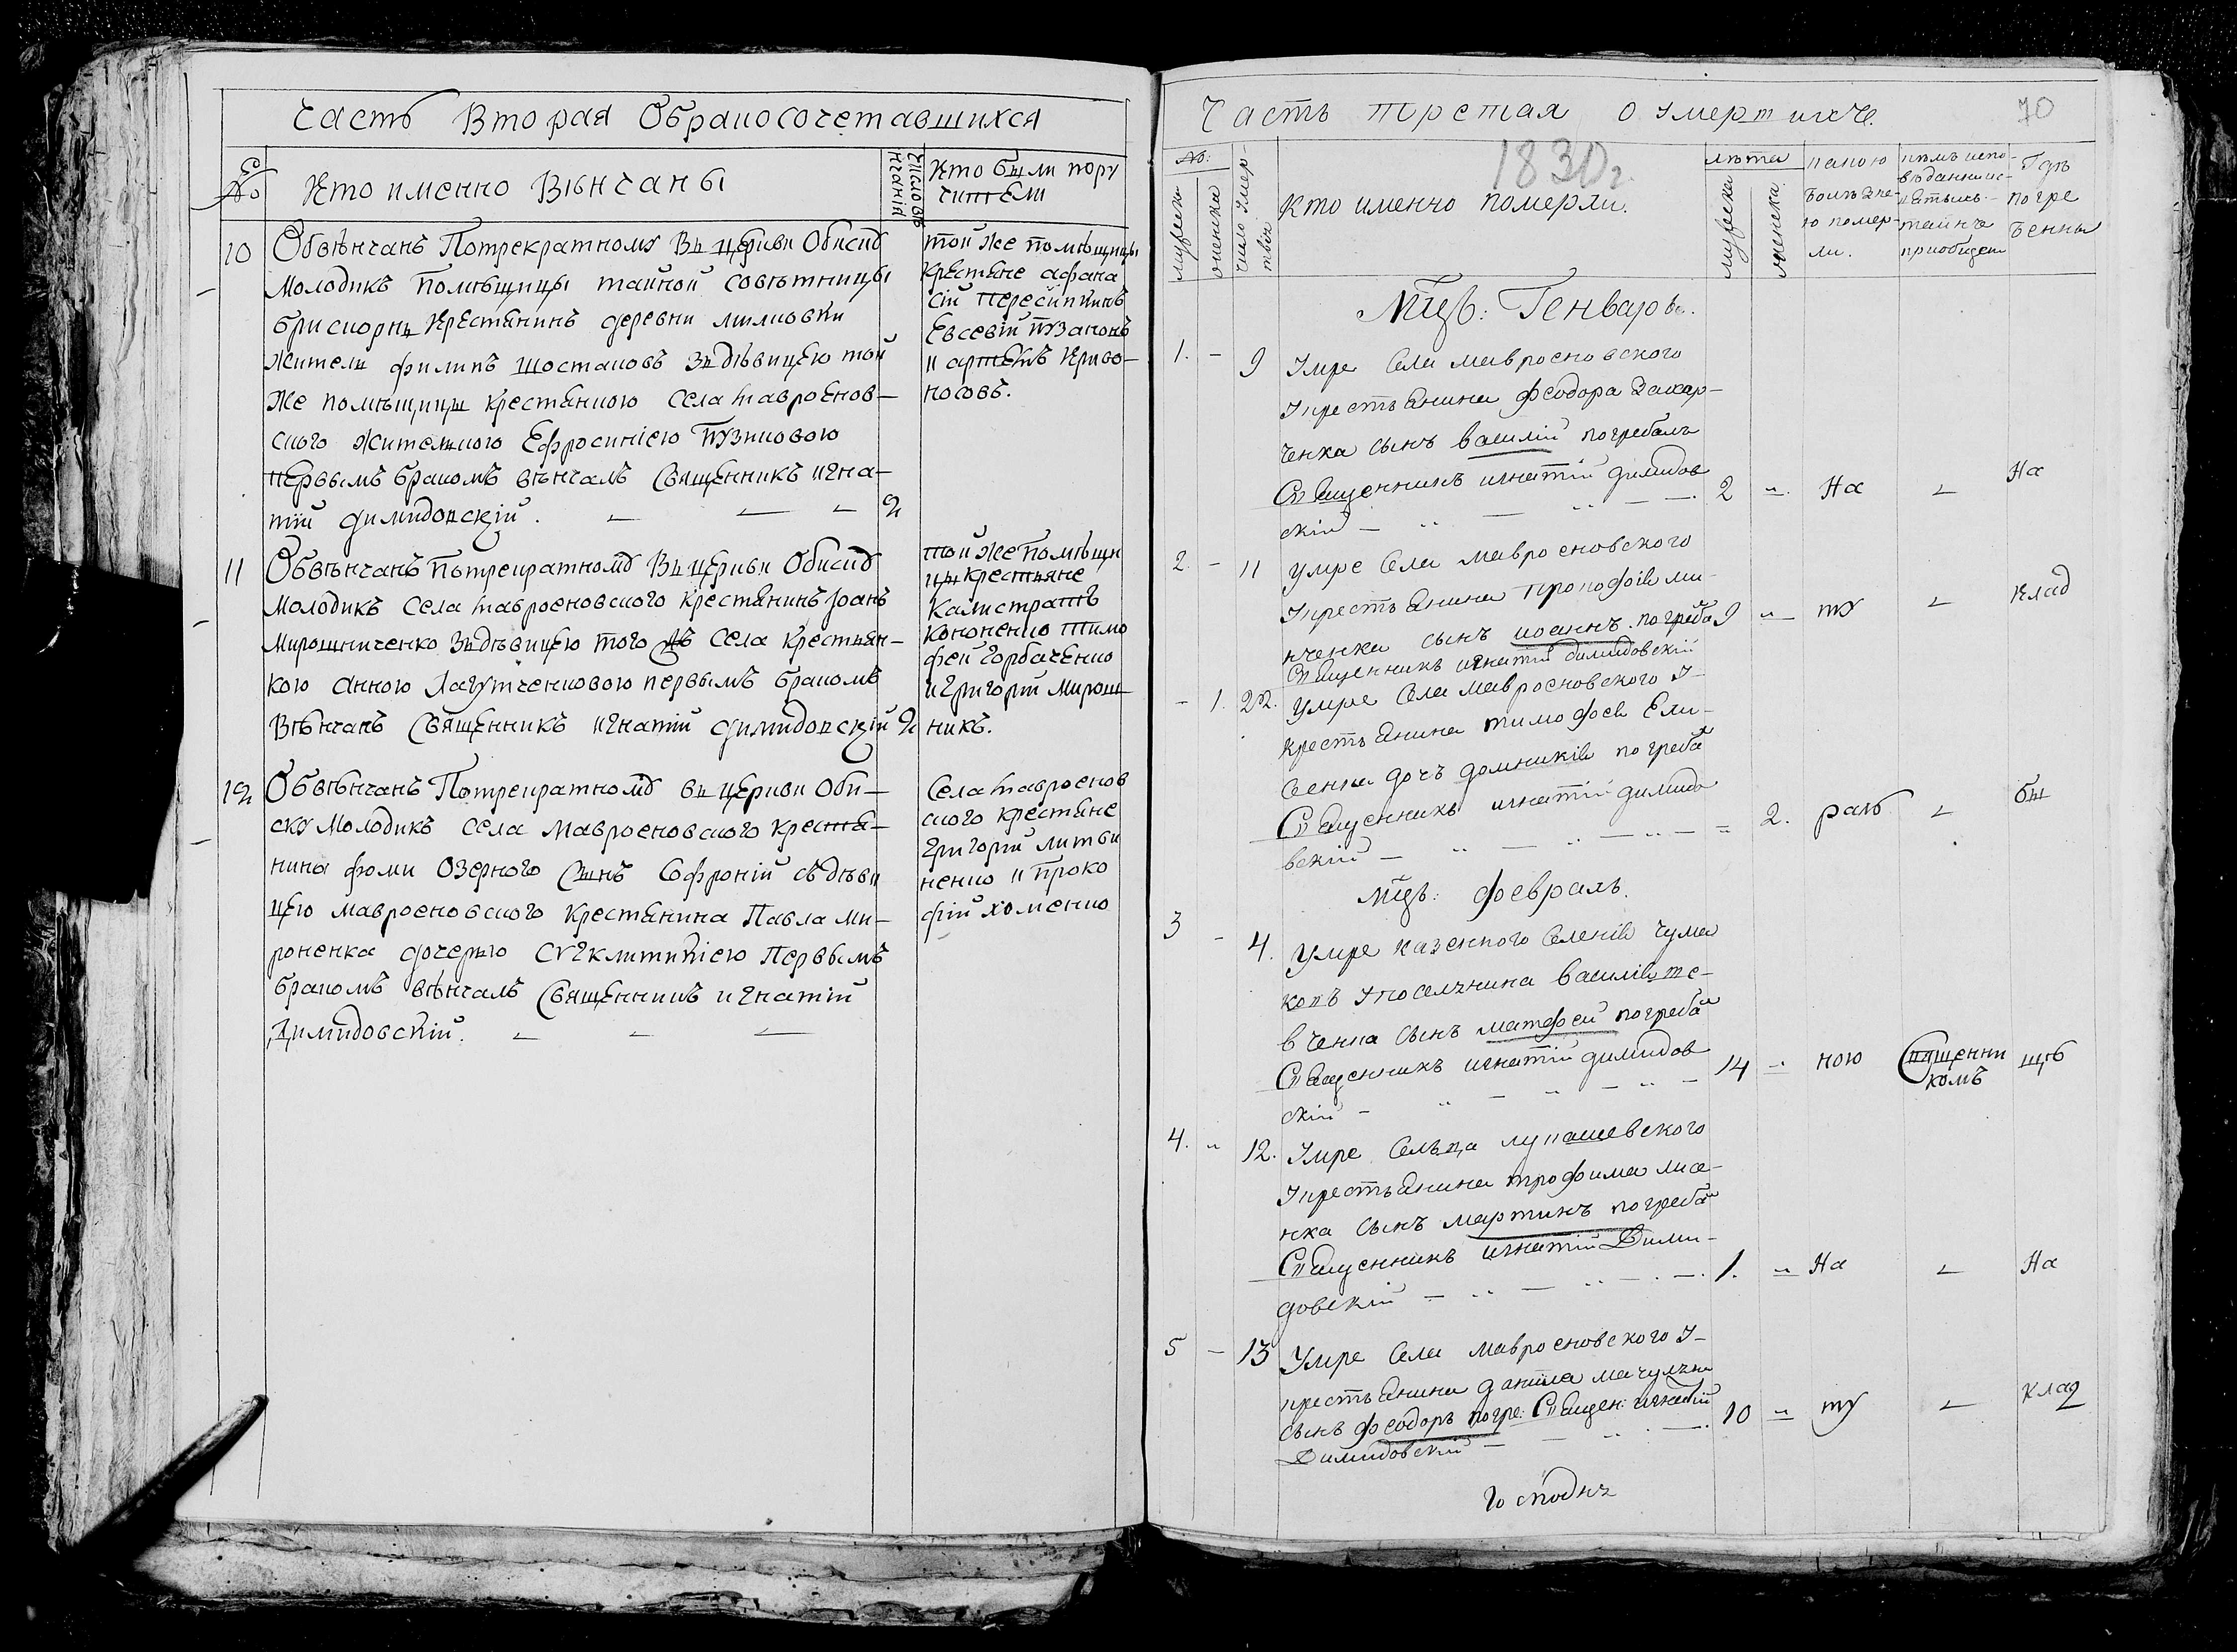 Часть Вторая Обракосочетавшихся
№
Кто именно Вѣнчаны
Кто были пору
чители
10
Обвѣнчанъ Потрекратному Въ церкви Обиску
Молодикъ Помѣщицы тайной совѣтницы
крестянинъ деревни
Жители филипъ Шостаковъ здѣвицею той
Же помѣщицы крестянкою села Мавроенов-
ского жителкою Ефросиніею Пузиковою
Первымъ бракомъ вѣнчалъ Священникъ игна-
тій димидовскій. 2
той же помѣщицы
крестяне афана
сій
Евсевій Пузаковъ
и артемъ криво-
носовъ.
11
Обвѣнчанъ Потрекратному Въ церкви Обиску
Молодикъ Села Мавроеновского крестянинъ Іоанъ
Мирошниченко здѣвицею того жъ Села крестьян-
кою Анною Лагутченковою первымъ бракомъ
Вѣнчалъ Священникъ игнатій димидовскій 2
той же Помѣщи
цы крестьяне
Калистратъ
Кононенко Тимо
фей Горбаченко
и Григорій Мирош-
никъ.
12
Обвѣнчанъ Потрекратному въ церкви Оби-
ску Молодикъ Села Мавроеновского крестя-
нина фоми Озерного Сынъ Софроній съ дѣви
цею мавроеновского крестянина Павла Ми-
роненка дочерью Сугклитикіею Первымъ
бракомъ вѣнчалъ Священникъ игнатій
Димидовскій.
Села Мавроенов
ского крестяне
Григорій Литви
ненко и Проко
фій Хоменко
Часть третая о умерших
70
1830 г.
№:
мужеска
женска
число умер-
твія
кто именно померли.
лѣта
мужеска
женска
какою
болѣзне-
ю помер-
ли.
кѣмъ испо-
вѣданы и с-
тайнъ
приобщен
Гдѣ
погре
бенны
Мцъ: Генваръ.
1. - 9 Умре Села мавроеновского
крестьянина Феодора Захар-
ченка сынъ василій погребалъ
Священникъ игнатій димидов
скій 2 На На
2 - 11 Умре Села мавроеновского
крестьянина прокофія ми-
нченка сынъ иоаннъ погреба 9 ту клад
Священникъ игнатій димидовскій
- 1. 22. Умре Села мавроеновского
крестьянина тимофея Ели-
сенка дочъ домникія погреба
Священникъ игнатій димидо
вскій 2. раъ бы
Мцъ: февраль.
3 - 4. Умре казенного Селенія чума
ковъ поселянина василія те-
вченка сынъ матфей погреба
Священникъ игнатій димидов
скій 14 ною Священни щѣ
комъ
4. 12. Умре Сельца лукашевского
крестьянина трофима лисе-
нка сынъ мартинъ погреба
Священникъ игнатій Дими-
довскій 1. На На
5 - 13 Умре Села мавроеновского
крестьянина данила
сынъ феодоръ погре: Священ: игнатій 10 ту клад
Димидовскій